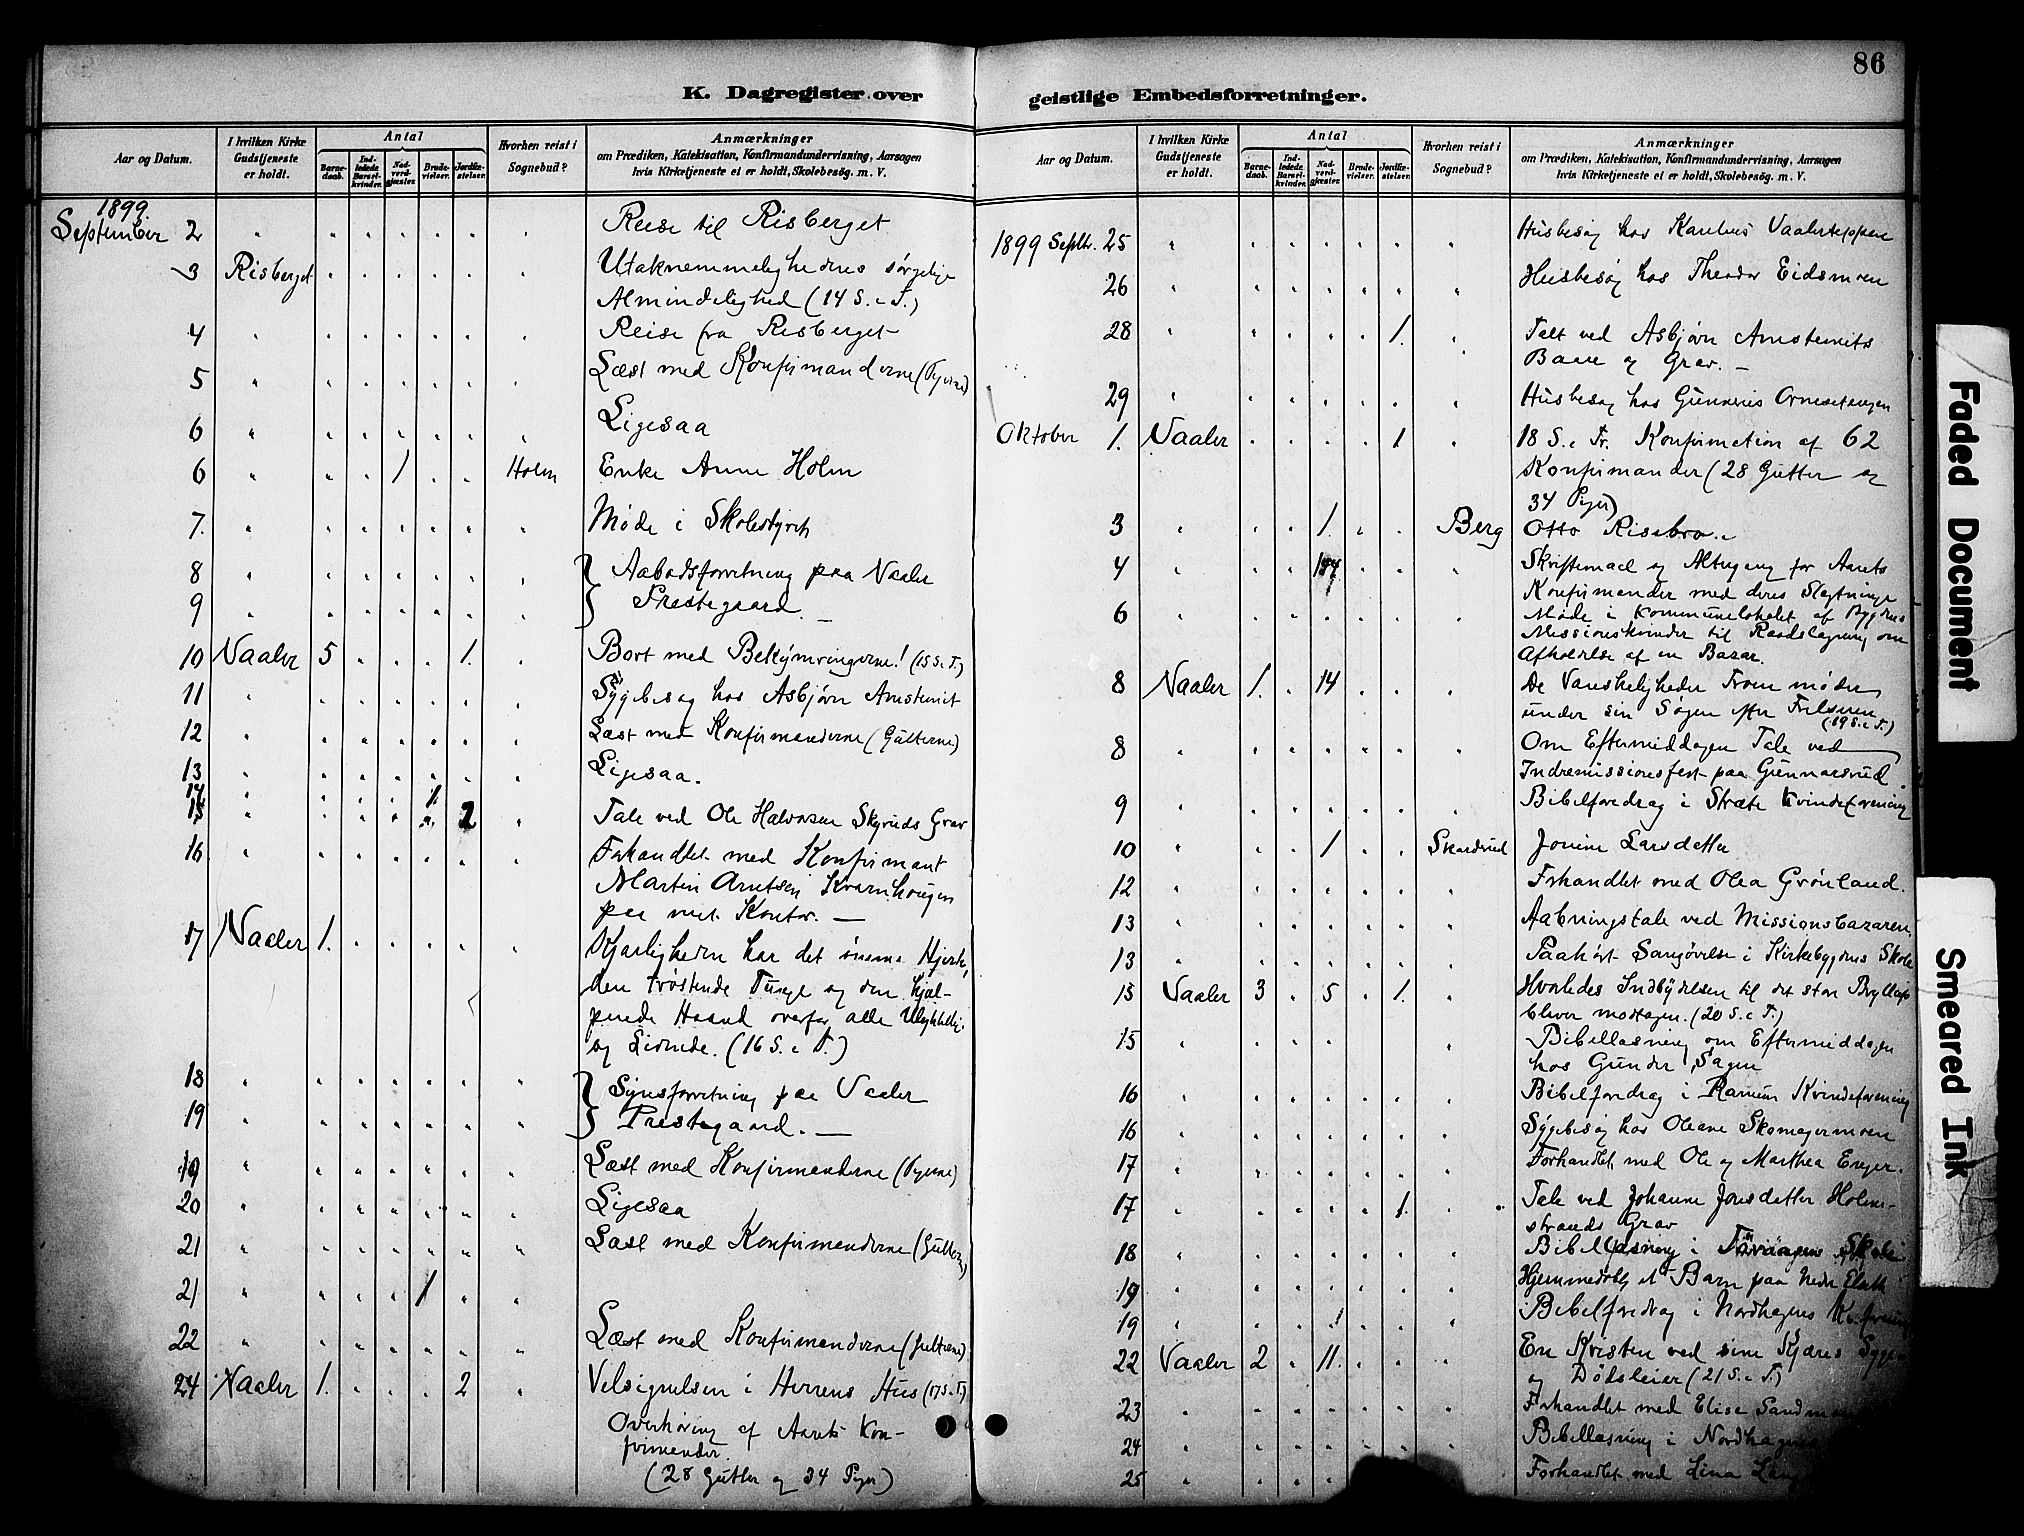 86
K. Dagregister over
geistlige Embedsforretninger.
Aar og Datum.
I hvilken Kirke Gudstjeneste er holdt.
Antal
Barne-daab.
Ind-ledede Barsel-kvinder.
Nad-verd-gjæster.
Brude-vielser.
Jordfæ-stelser.
Hvorhen reist i Sognebud?
Anmærkninger
om Prædiken, Katekisation, Konfirmandundervisning, Aarsagen
hvis Kirketjeneste ei er holdt, Skolebesøg. m. V.
1899
September 2 Reise til Risberget
3 Risberget Utaknemmelighedens sørgelige
Almindelighed (14 S. e. T.)
4 Reise fra Risberget
5 Læst med Konfirmanderne (Pigerne)
6 Ligesaa
6 1 Holm Enke Anne Holm
7. Møde i Skolestyret
8 Aabodsforretning paa Vaaler
9 Prestegaard
10 Vaaler 5 1. Bort med Bekymringerne! (15 S. e. T.)
11 Sygebesøg hos Asbjørn
12 Læst med Konfirmanderne (Gutterne)
13 Ligesaa.
14 1.
15 2 Tale ved Ole Halvorsen Skyruds Grav
16 Forhandlet med Konfirmant
Martin Arntsen Kvarnhougen
paa mit Kontor.
17 Vaaler 1. Kjærligheden har det ømme Hjerte,
den trøstende Tunge og den hjæl-
pende Haand overfor alle Ulykkelig.
og Lidende. (16 S. e. T.)
18 Synsforretning paa Vaaler
19 Prestegaard.
19 Læst med Konfirmanderne (Pigerne)
20 Ligesaa
21 Læst med Konfirmanderne (Gutterne)
21 1
22 Læst med Konfirmanderne (Gutterne)
24 Vaaler 1. 2 Velsignelsen i Herrens Hus (17 S. e. T.)
Overhøring af Aarets Kon-
firmander.
(28 Gutter og 34 Piger)
Aar og Datum.
I hvilken Kirke Gudstjeneste er holdt.
Antal
Barne-daab.
Ind-ledede Barsel-kvinder.
Nad-verd-gjæster.
Brude-vielser.
Jordfæ-stelser.
Hvorhen reist i Sognebud?
Anmærkninger
om Prædiken, Katekisation, Konfirmandundervisning, Aarsagen
hvis Kirketjeneste ei er holdt, Skolebesøg. m. V.
1899 Septbr. 25 Husbesøg hos
26 Husbesøg hos Theodor Eidsmoen
28 1. Talt ved Asbjørn
Baare og Grav.
29 Husbesøg hos Gunnerius
Oktober 1. Vaaler 1 18 S. e. Tr. Konfirmation af 62
Konfirmander (28 Gutter og
34 Piger)
3 1. Berg Otto Risebro
4 Skriftemaal og Altergang for Aarets
Konfirmander med deres Slægtninge
6 Møde i Kommunelokalet af Bygdens
Missionskvinder til Raadslagning om
Afholdelse af en Bazar.
8 Vaaler 1. 14 De Vanskeligheder Troen møder
under sin Søgen efter Frelseren
(19 S. e. T.)
8 Om Eftermiddagen Tale ved
Indremissionsfest paa Gunnarsrud
9 Bibelforedrag i Stræte Kvindeforening
10 1 Skardsrud Jonine Larsdatter
12 Forhandlet med Olea Grønland.
13 Aabningstale ved Missionsbazaren.
13 Paahørt Sangøvelse i Kirkebygdens Skole
15 Vaaler 3 5 1. Hvorledes Indbydelsen til det store Bryllup
bliver modtagen. (20 S. e. T.)
15 Bibellæsning om Eftermiddagen
hos Gunder Sagen
16 Bibelforedrag i Kvindeforening
16 Sygebesøg hos Oleane Skomagermoen
17 Forhandlet med Ole og Marthea Enger.
17 1. Tale ved Johanne Jonsdatter Holm-
strands Grav
18 Bibellæsning i Skole
19 Hjemmedøbt et Barn paa nedre
19 Bibelforedrag i Nordhagens
22 Vaaler 2 11. En Kristen ved sine Kjæres Syge
og Dødsleier (21 S. e. T.)
23 Forhandlet med Elise
24 Bibellæsning i
25 Forhandlet med Lina
Faded Document
Smeared Ink